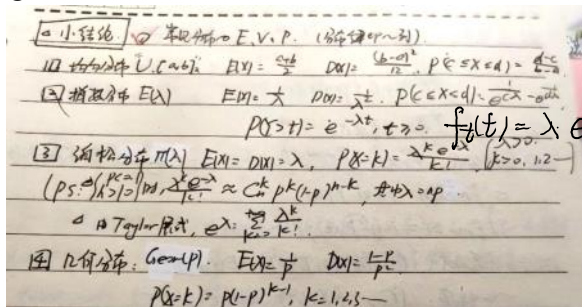 小结论. 常见分布の E.V.P.
① 均匀分布 U(a,b): E(X) = \frac{a+b}{2} D(X) = \frac{(b-a)^2}{12}, P(c≤X≤d) = \frac{d-c}{b-a}
② 指数分布 E(λ) E(X) = \frac{1}{λ} D(X) = \frac{1}{λ^2}.
P(X>t) = e^{-λt}, t≥0. f_t(t) = λ·e
③ 泊松分布 π(λ) E(X) = D(X) = λ, P(X=k) = \frac{λ^k e^{-λ}}{k!}
(ps: 时, \frac{λ^k e^{-λ}}{k!} ≈ C_n^k p^k(1-p)^{n-k}, 其中λ=np
△ 由Taylor展式, e^λ = \sum_{k=0}^{+∞} \frac{λ^k}{k!}.
④ 几何分布: Geo(p). E(X) = \frac{1}{p} D(X) = \frac{1-p}{p^2}
P(X=k) = p(1-p)^{k-1}, k=1,2,3…